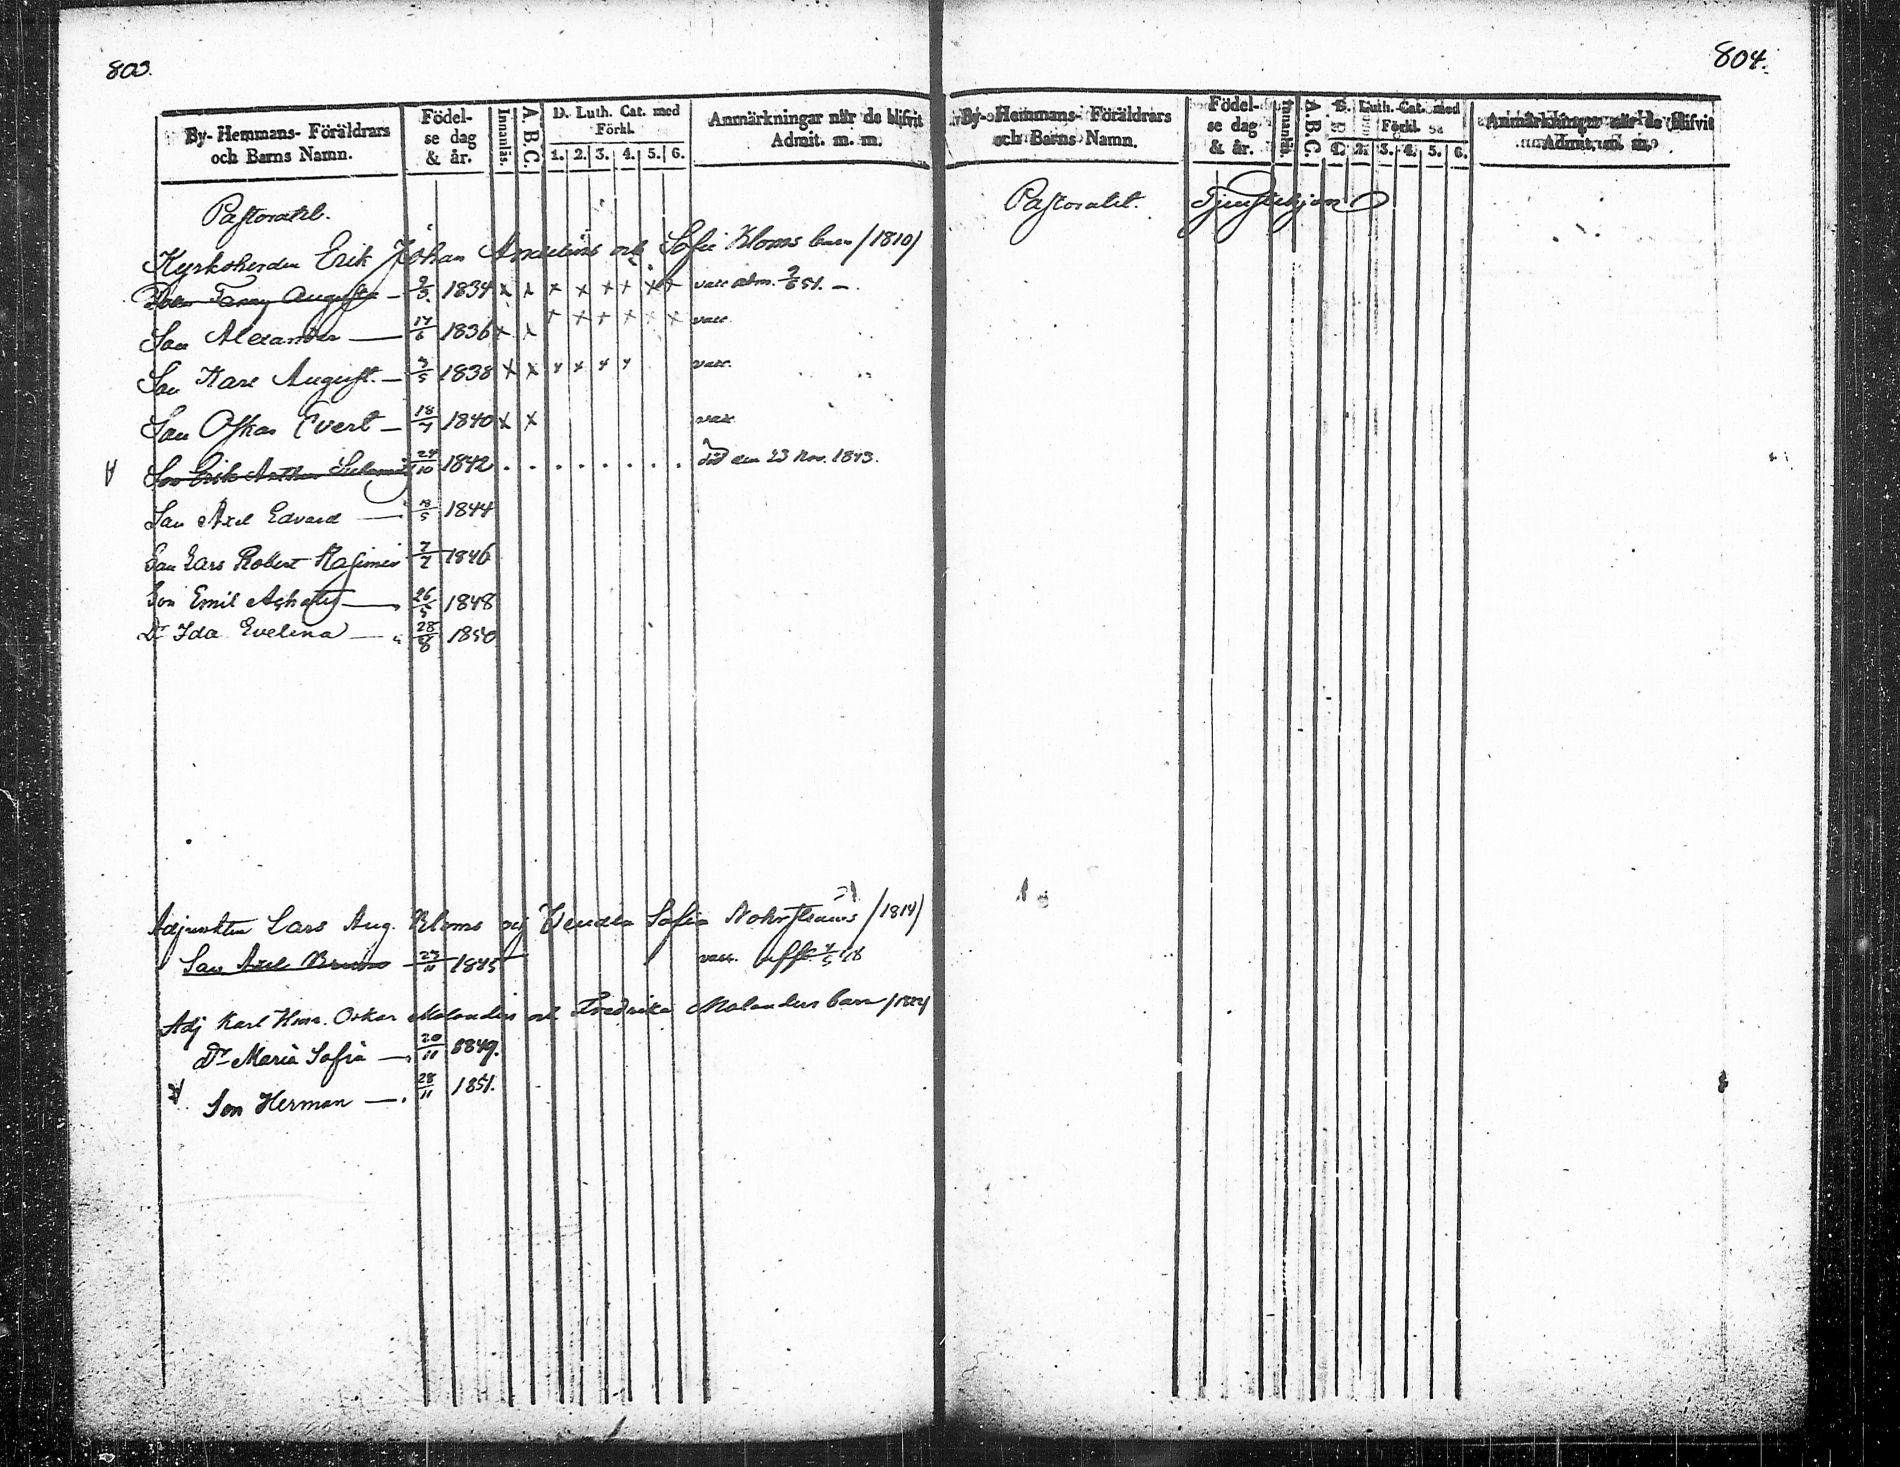 803.
By- Hemmans- Föräldrars och Barns Namn.
Födelse dag & år.
Innanläs.
A.B.C.
D. Luth. Cat. med Förkl.
1. 2. 3. 4. 5. 6.
Anmärkningar när de blifvit Admit. m. m.
Pastoratet.
Kyrkoherden Erik Johan och Sofie Kloms barn /1810/
Fanny Augusta 1834 x x x x x x x x vacc adm. 51.
Son Alexander 17/6 1836 x x x x x x x x vacc
Son Karl August. 1838 x x x x x x vacc.
Son Oskar Evert 18/7 1840 x x vacc
Son Erik Arthur 24/10 1842 död den 23 Nov. 1843.
Son Axel Edvard 1844
Son Lars Robert Kasimir 7/7 1846
Son Emil 26/5 1848
Dr Ida Evelina 28/8 1850
Adjunkten Lars Aug. Kloms och Wendla Sofia /1819/
Son Axel 1845 vacc.
Adj Karl Oskar Molanders och Fredrika Molanders barn
Dr Maria Sofia 20/11 1849.
Son Herman 28/11 1851.
804.
By- Hemmans- Föräldrars och Barns Namn.
Födelse dag & år.
Innanläs.
A.B.C.
D. Luth. Cat. med Förkl.
1. 2. 3. 4. 5. 6.
Anmärkningar när de blifvit Admit. m. m.
Pastoratet. Tjenstehjon